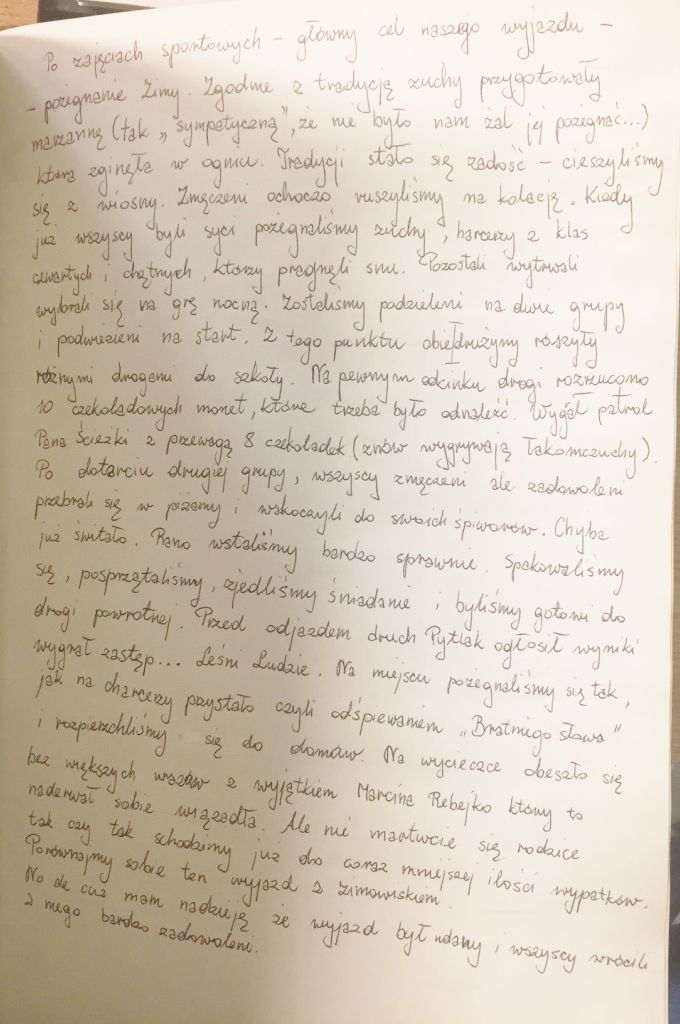 Po zajęciach sportowych - główny cel naszego wyjazdu -
- pożegnanie zimy. Zgodnie z tradycją zuchy przygotowały
marzannę (tak „sympatyczną", że nie było nam żal jej pożegnać...)
która zginęła w ogniu. Tradycji stało się zadość - cieszyliśmy
się z wiosny. Zmęczeni ochoczo ruszyliśmy na kolację. Kiedy
już wszyscy byli syci pożegnaliśmy zuchy, harcerzy z klas
czwartych i chętnych, którzy pragnęli snu. Pozostali wytrwali
wybrali się na grę nocną. Zostaliśmy podzieleni na dwie grupy
i podwiezieni na start. Z tego punktu obie drużyny ruszyły
różnymi drogami do szkoły. Na pewnym odcinku drogi rozrzucono
10 czekoladowych monet, które trzeba było odnaleźć. Wygał patrol
Pana Ścieżki z przewagą 8 czekoladek (znów wygrywają łakomczuchy).
Po dotarciu drugiej grupy, wszyscy zmęczeni ale zadowoleni
przebrali się w piżamy i wskoczyli do swoich śpiworów. Chyba
już świtało. Rano wstaliśmy bardzo sprawnie. Spakowaliśmy
się, posprzątaliśmy, zjedliśmy śniadanie i byliśmy gotowi do
drogi powrotnej. Przed odjazdem druch Pytlak ogłosił wyniki
wygrał zastęp... Leśni Ludzie. Na miejscu pożegnaliśmy się tak,
jak na charcerzy przystało czyli odśpiewaniem „Bratniego słowa"
i rozpierzchliśmy się do domów. Na wycieczce obeszło się
bez większych urazów z wyjątkiem Marcina Rebejko który to
naderwał sobie wiązadła. Ale nie martwcie się rodzice
tak czy tak schodzimy już do coraz mniejszej ilości wypatków.
Porównajmy sobie ten wyjazd z zimowiskiem.
No de cuż mam nadzieję że wyjazd był udany i wszyscy wrócili
z niego bardzo zadowoleni.